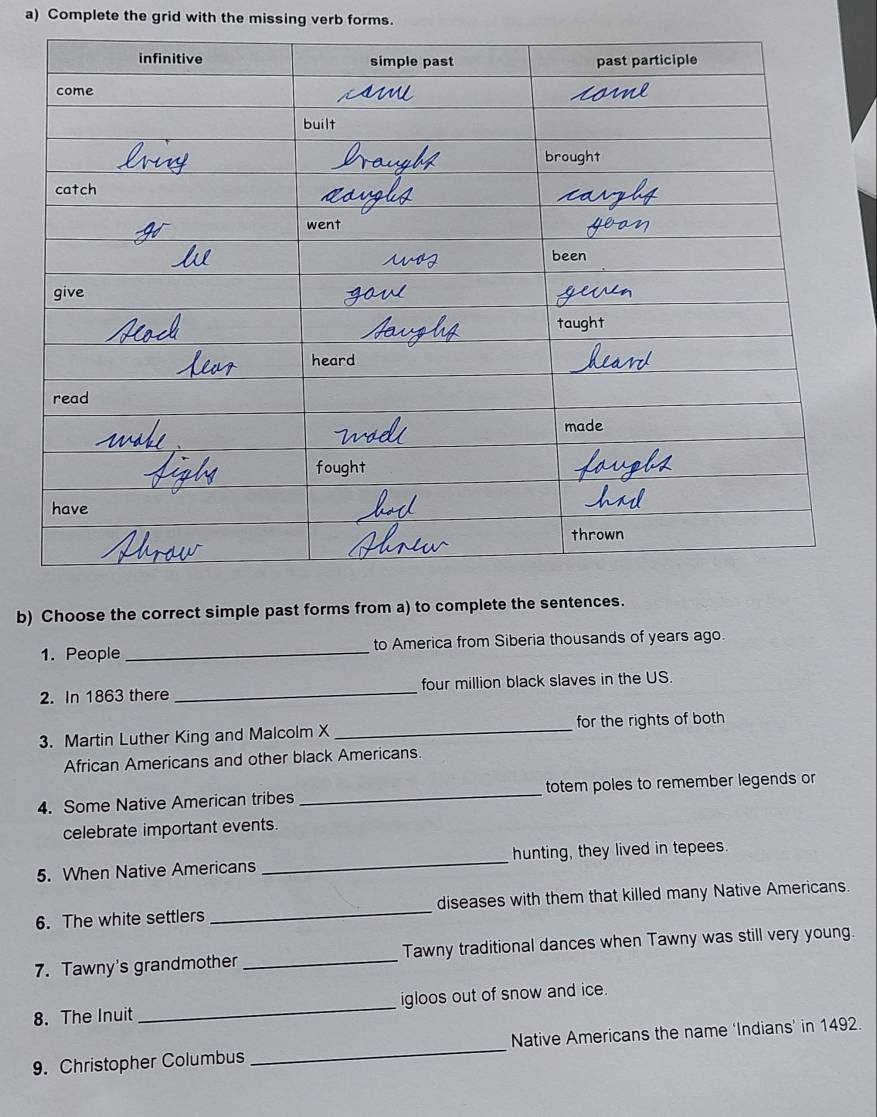 a) Complete the grid with the missing verb forms.
infinitive simple past past participle
come came come
built
bring brought brought
catch caught caught
go went goan
be was been
give gave geven
teach taught taught
hear heard heard
read
make made made
fight fought fought
have had had
throw threw thrown
b) Choose the correct simple past forms from a) to complete the sentences.
1. People ________ to America from Siberia thousands of years ago.
2. In 1863 there ________ four million black slaves in the US.
3. Martin Luther King and Malcolm X ________ for the rights of both
African Americans and other black Americans.
4. Some Native American tribes ________ totem poles to remember legends or
celebrate important events.
5. When Native Americans ________ hunting, they lived in tepees.
6. The white settlers ________ diseases with them that killed many Native Americans.
7. Tawny's grandmother ________ Tawny traditional dances when Tawny was still very young.
8. The Inuit ________ igloos out of snow and ice.
9. Christopher Columbus ________ Native Americans the name 'Indians' in 1492.